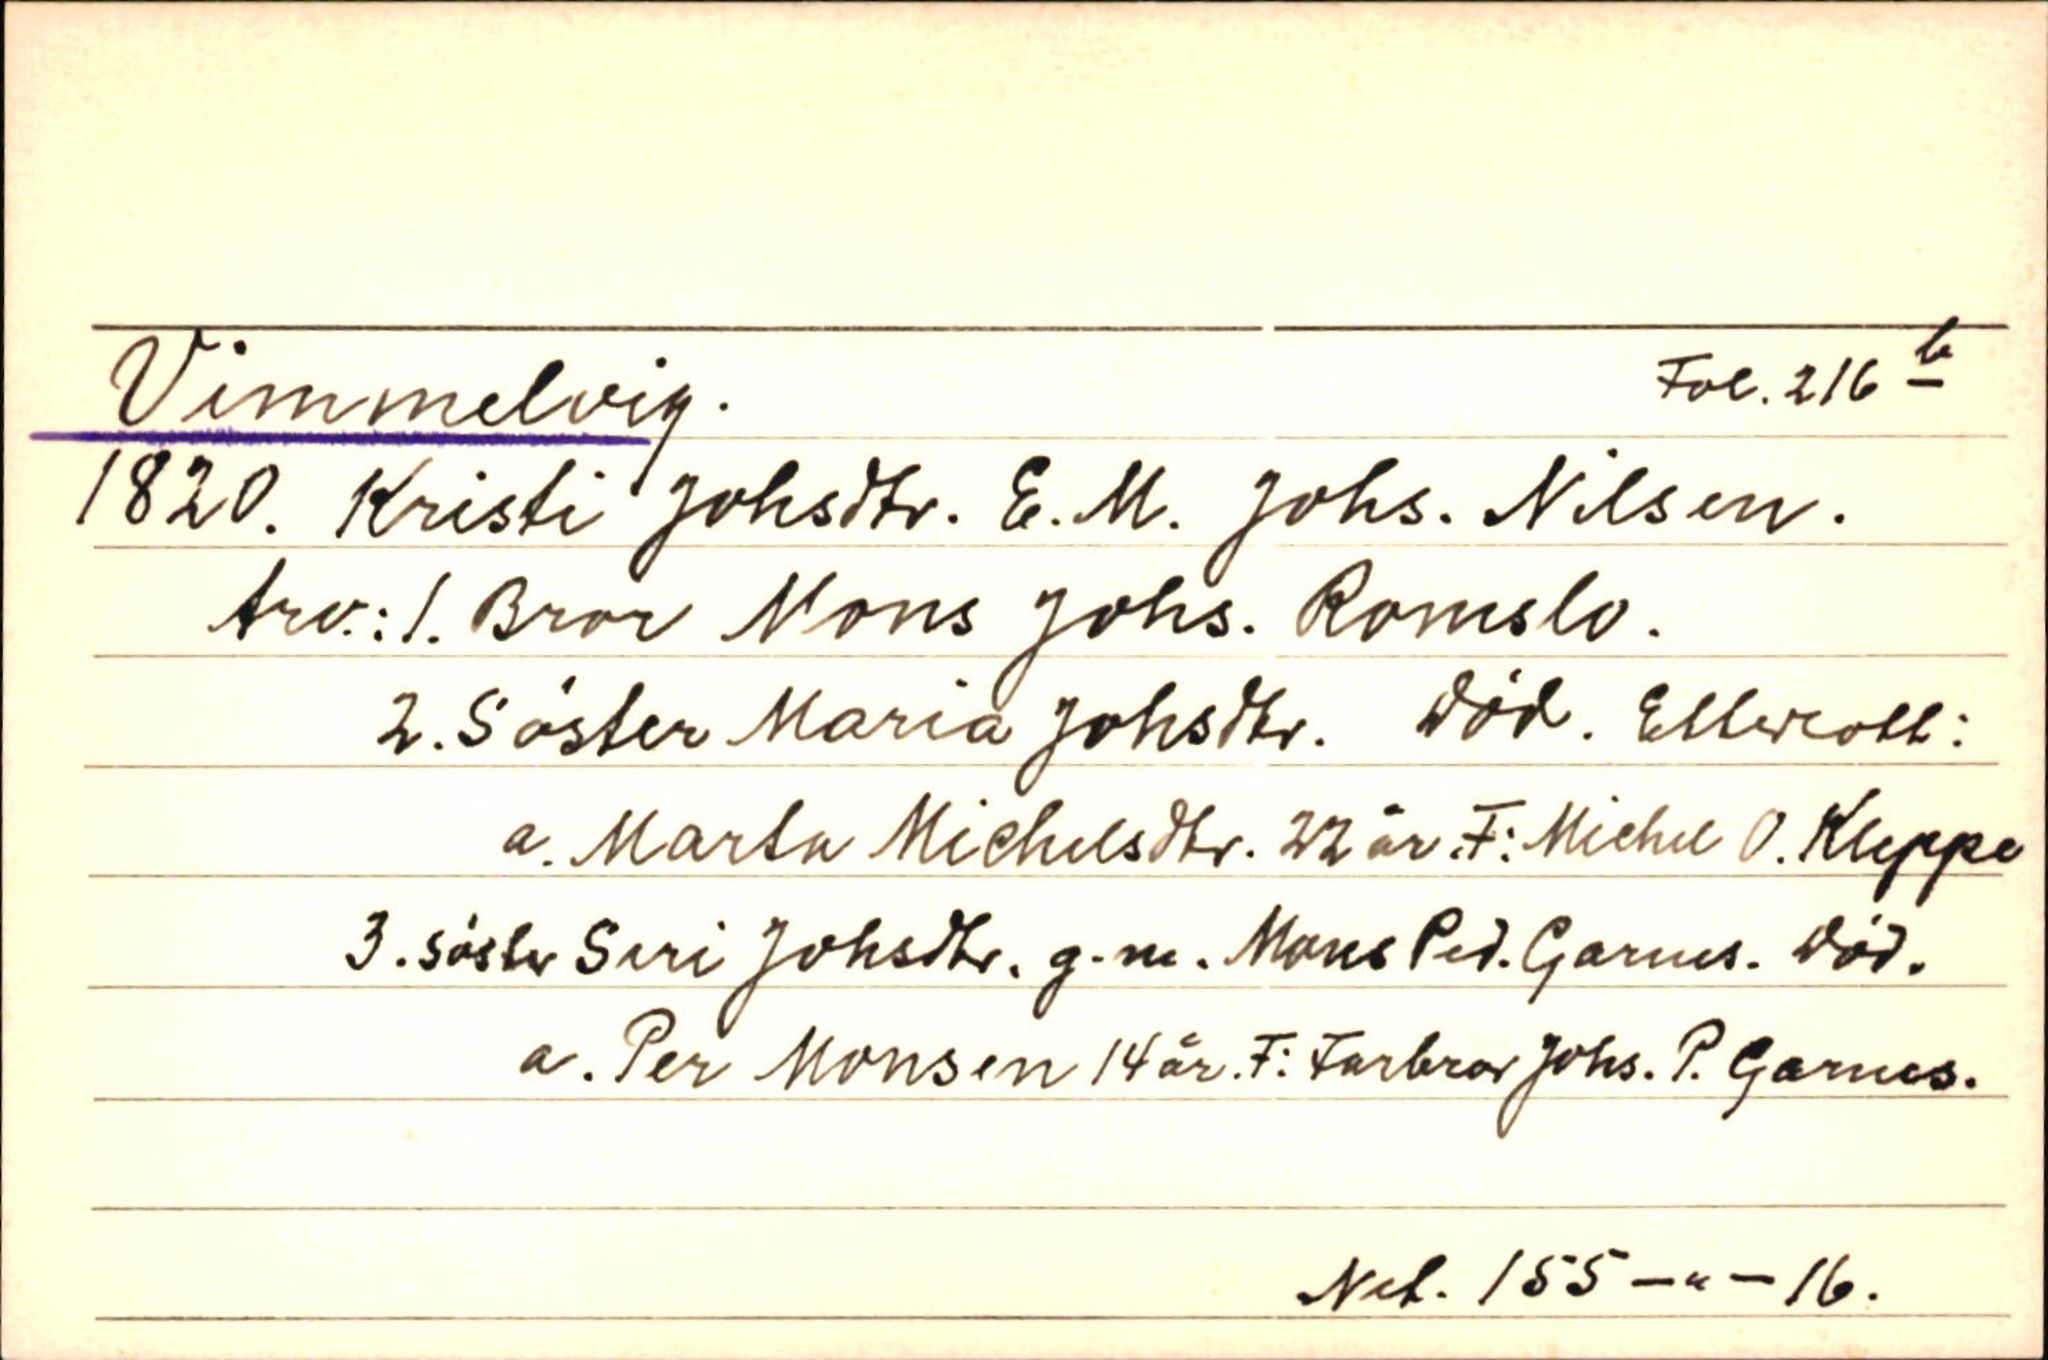 Vimmelvig. Fol. 216 b
1820. Kristi Johsdtr. E. M. Johs. Nilsen.
Arv.: 1. Bror Mons Johs. Romslo.
2. Söster Maria Johsdtr. Död. Etterlatt:
a. Marta Michelsdtr. 22 år. F: Michel O. Kleppe
3. söster Siri Johsdtr. g. m. Mons Ped. Garnes. Död.
a. Per Monsen 14 år. F: Farbror Johs. P. Garnes.
Net. 155 – " – 16.